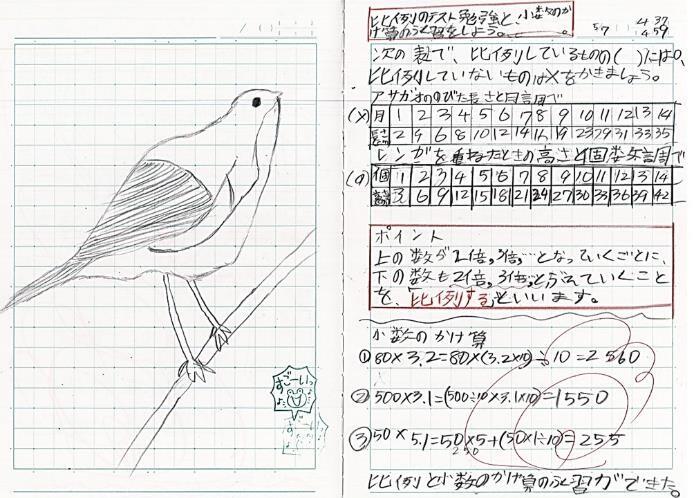 比例のテスト勉強と、小数のか
け算のふく習をしよう。
57 4 37
4 59
次の表で、比例しているものの( )には○、
比例していないものは×をかきましょう。
アサガオののびた長さと月調べ
(×)月 1 2 3 4 5 6 7 8 9 10 11 12 13 14
長さ 2 4 6 8 10 12 14 16 19 23 29 31 33 35
レンガを重ねたときの高さと個数調べ
(○)個 1 2 3 4 5 6 7 8 9 10 11 12 13 14
高さ 3 6 9 12 15 18 21 24 27 30 33 36 39 42
ポイント
上の数が2倍。3倍。…となっていくごとに、
下の数も2倍。3倍。とふえていくこと
を、「比例する」といいます。
小数のかけ算
①80×3.2=80×(3.2×10)÷10=2560
②500×3.1=(500÷10×3.1×10)=1550
③50×5.1=50×5+(50×1÷10)=255
250
比例と小数のかけ算のふく習ができた。
すごーいっ